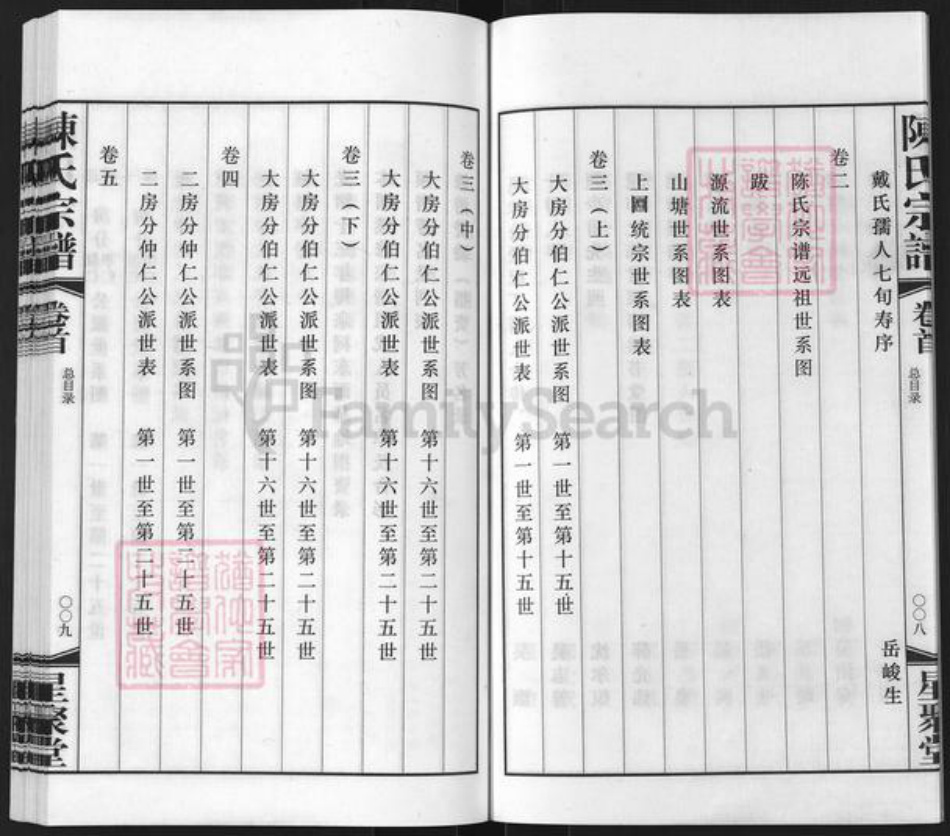 陳氏宗譜
卷首
总目录
〇〇八
星聚堂
戴氏孺人七旬寿序 岳峻生
卷二
陈氏宗谱远祖世系图
跋
源流世系图表
山塘世系图表
上圆统宗世系图表
卷三（上）
大房分伯仁公派世系图 第一世至第十五世
大房分伯仁公派世表 第一世至第十五世
卷三（中）
大房分伯仁公派世系图 第十六世至第二十五世
大房分伯仁公派世表 第十六世至第二十五世
卷三（下）
大房分伯仁公派世系图 第十六世至第二十五世
大房分伯仁公派世表 第十六世至第二十五世
卷四
二房分仲仁公派世系图 第一世至第二十五世
二房分仲仁公派世表 第一世至第二十五世
卷五
陳氏宗譜
卷首
总目录
〇〇九
星聚堂
FamilySearch